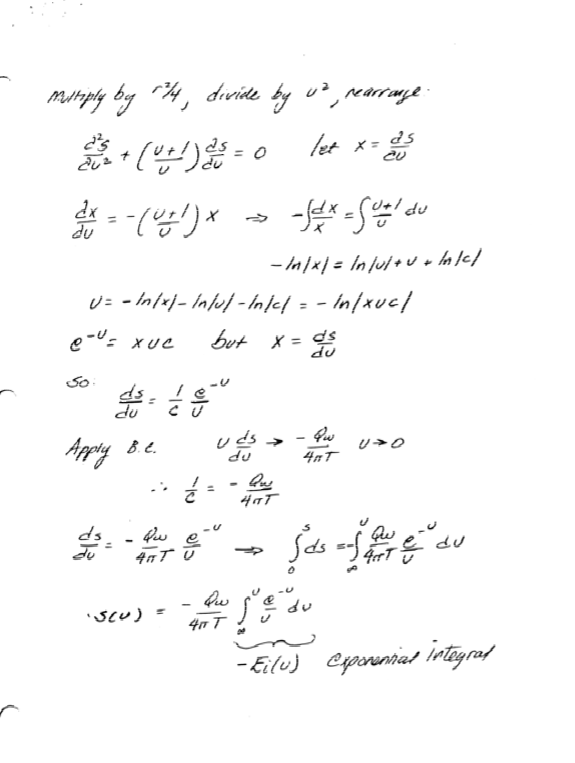 Multiply by r²/4, divide by u², rearrange.
∂²s/∂u² + ((u+1)/u) ds/du = 0   let x = ∂s/∂u
dx/du = -((u+1)/u) x ⇒ -∫dx/x = ∫(u+1)/u du
-ln|x| = ln|u| + u + ln|c|
u = -ln|x| - ln|u| - ln|c| = -ln|xuc|
e^-u = xuc   but x = ds/du
So:
ds/du = 1/c e^-u/u
Apply B.C.   u ds/du → -Qw/4πT   u→0
∴ 1/c = -Qw/4πT
ds/du = -Qw/4πT e^-u/u ⇒ ∫₀^s ds = -∫_∞^u Qw/4πT e^-u/u du
s(u) = -Qw/4πT ∫_∞^u e^-u/u du
-Ei(u) exponential integral